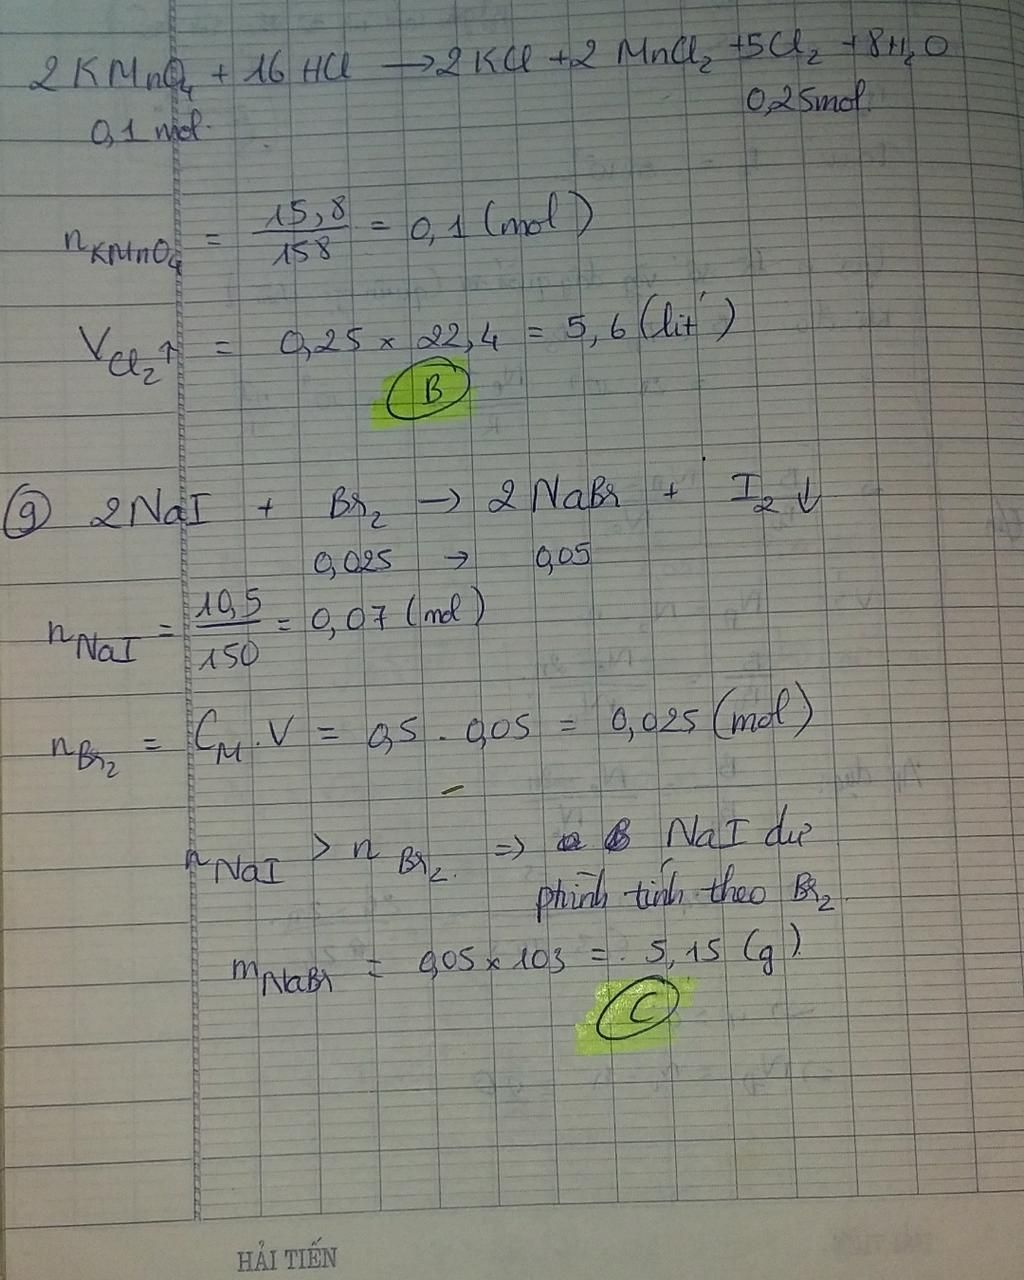 2KMnO₄ + 16HCl → 2KCl + 2MnCl₂ + 5Cl₂ + 8H₂O
0,1 mol. 0,25mol.
n KMnO₄ = 15,8/158 = 0,1 (mol)
V Cl₂↑ = 0,25 × 22,4 = 5,6 (lít)
B
9 2NaI + Br₂ → 2NaBr + I₂ ↓
0,025 → 0,05
n NaI = 10,5/150 = 0,07 (mol)
n Br₂ = C_M . V = 0,5 . 0,05 = 0,025 (mol)
n NaI > n Br₂. ⇒ NaI dư
tính theo Br₂
m NaBr = 0,05 × 103 = 5,15 (g).
C
HẢI TIẾN